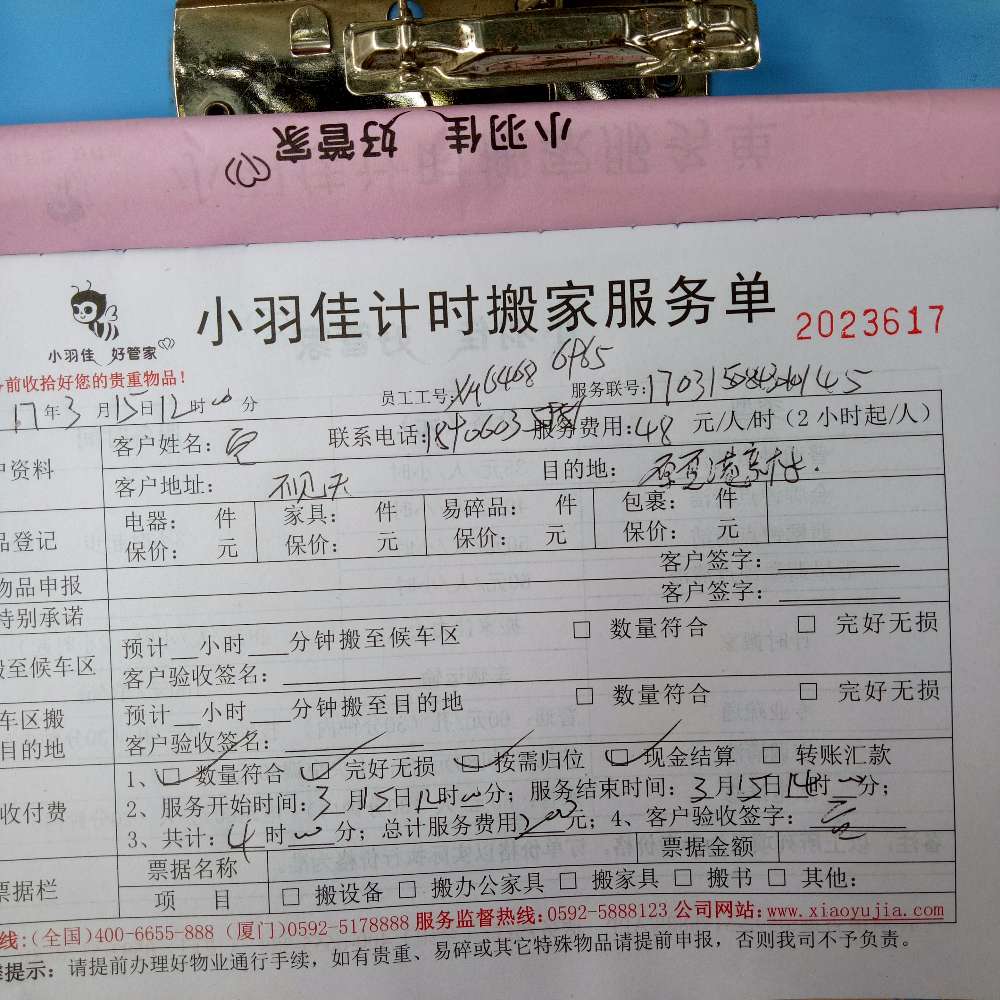 小羽佳 好管家
小羽佳计时搬家服务单
2023617
小羽佳 好管家
前收拾好您的贵重物品!
17年3月15日12时00分 员工工号: 服务联号:
户资料 客户姓名: 联系电话: 服务费用:48 元/人/时(2小时起/人)
客户地址: 目的地:
品登记 电器: 件 家具: 件 易碎品: 件 包裹: 件
保价: 元 保价: 元 保价: 元 保价: 元
物品申报 客户签字:
特别承诺 客户签字:
搬至候车区 预计___小时___分钟搬至候车区 □ 数量符合 □ 完好无损
客户验收签名:
车区搬 预计___小时___分钟搬至目的地 □ 数量符合 □ 完好无损
目的地 客户验收签名:
收付费 1、☑ 数量符合 ☑ 完好无损 ☑ 按需归位 ☑ 现金结算 □ 转账汇款
2、服务开始时间:3月15日12时00分;服务结束时间:3月15日14时00分;
3、共计:4时00分;总计服务费用200元;4、客户验收签字:
票据栏 票据名称 票据金额
项 目 □ 搬设备 □ 搬办公家具 □ 搬家具 □ 搬书 □ 其他:
线:(全国)400-6655-888 (厦门)0592-5178888 服务监督热线:0592-5888123 公司网站:www.xiaoyujia.com
提示:请提前办理好物业通行手续,如有贵重、易碎或其它特殊物品请提前申报,否则我司不予负责。